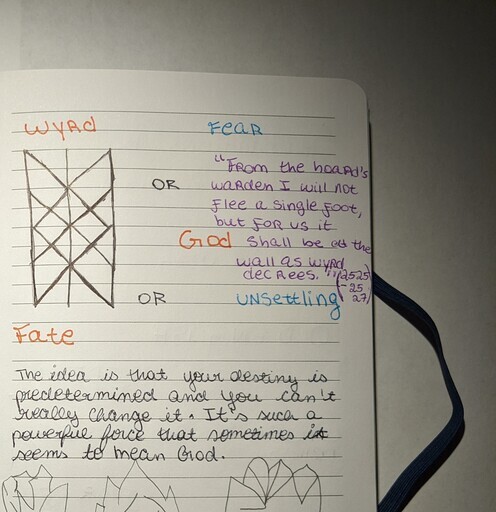 WYRD
FEAR
"FROM the hoard's
OR warden I will not
flee a single foot,
but FOR us it
God shall be at the
wall as wyrd
decrees." (2525
- 25
27)
OR UNSettling
Fate
The idea is that your destiny is
predetermined and you can't
really change it. It's such a
powerful force that sometimes it
seems to mean God.